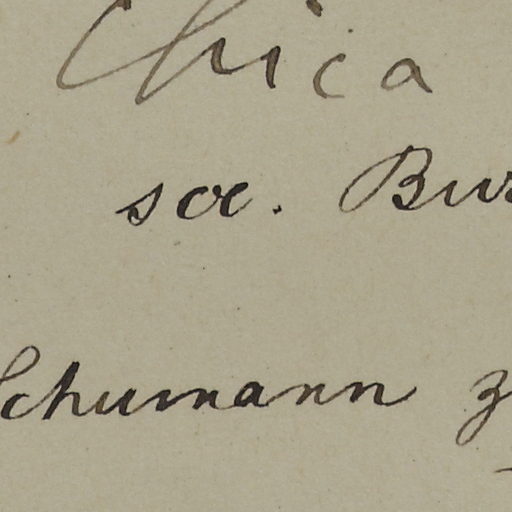 Chica
soc. Bur
Schumann z